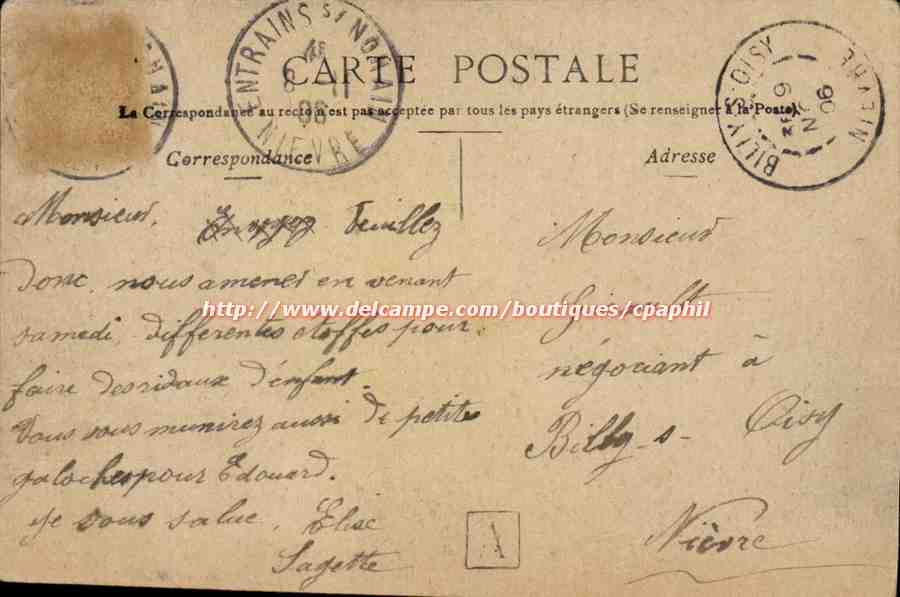 ENTRAINS S/ NOHAIN
NIEVRE
8 11
06
BILLY S. OISY
NIEVRE
9 NOV
06
CARTE POSTALE
La Correspondance au recto n'est pas acceptée par tous les pays étrangers (Se renseigner à la Poste).
Correspondance
Adresse
Monsieur, Veuillez
donc, nous amener en venant
samedi, differentes etoffes pour
faire des ridaux d'enfant.
Vous vous munirez aussi de petites
galoches pour Edouard.
Je vous salue, Elise
Sagette
Monsieur
négociant à
Billy-s- Oisy
Nièvre
A
http://www.delcampe.com/boutiques/cpaphil